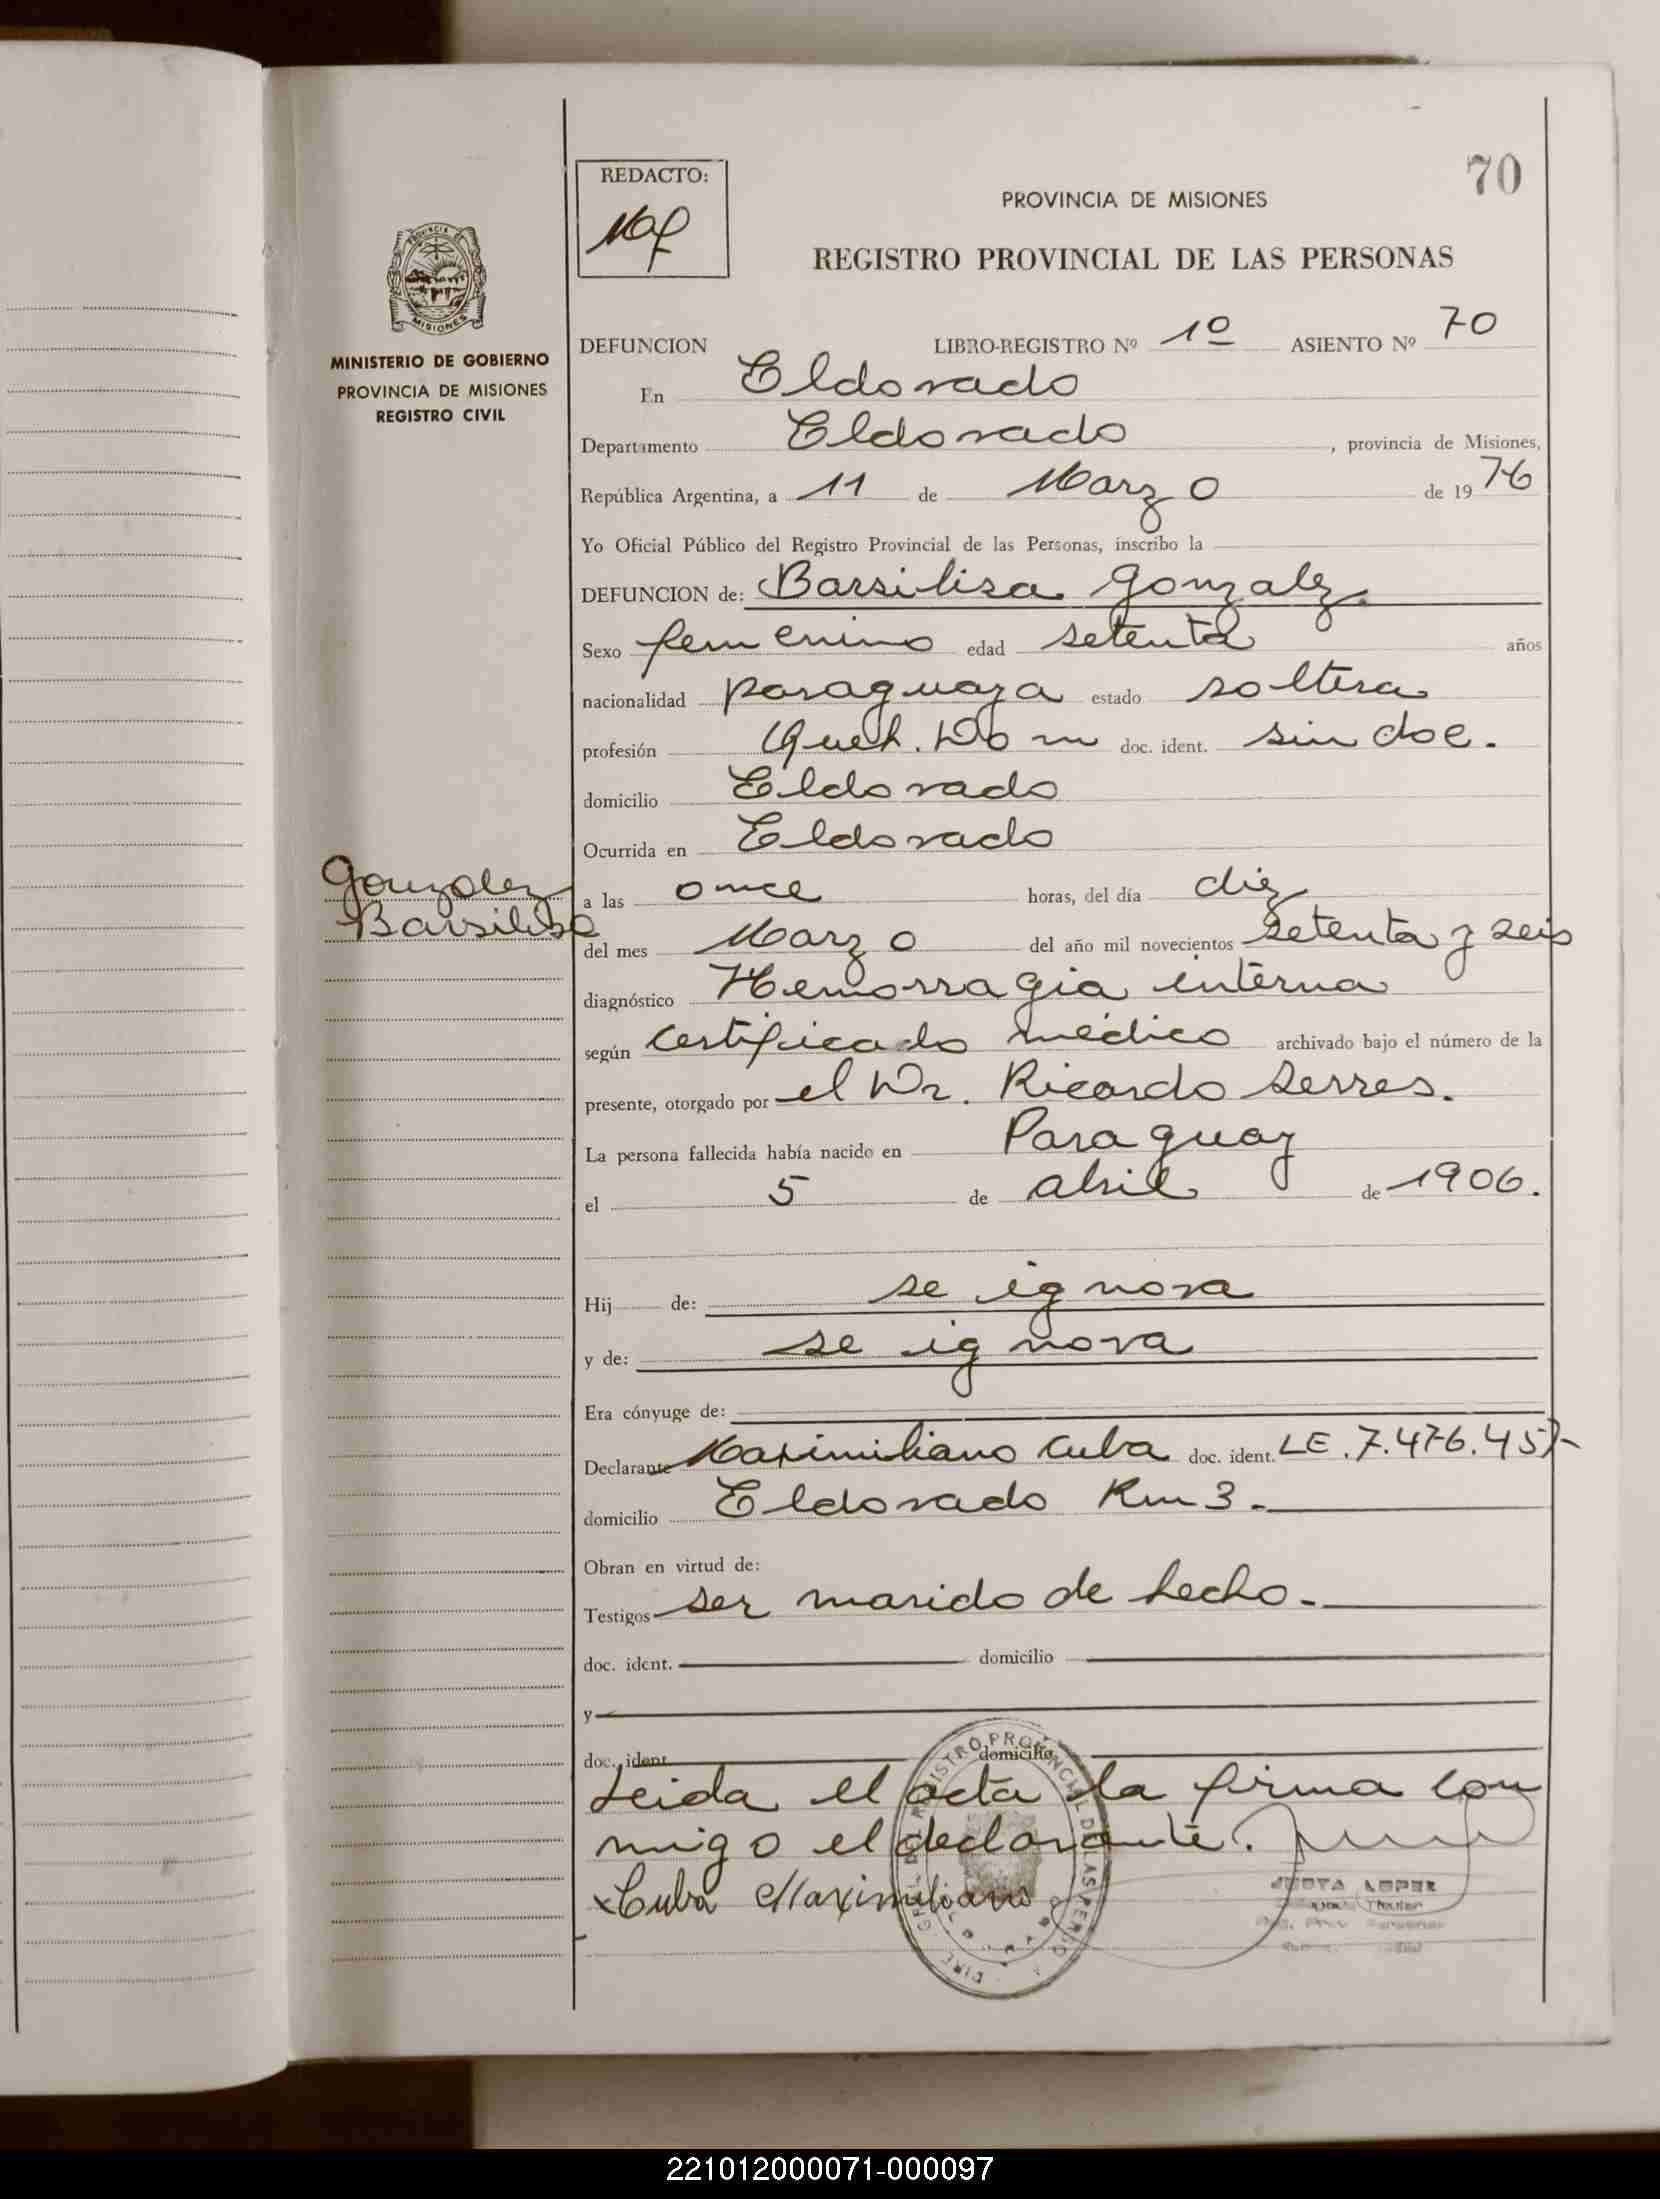 70
REDACTO:
PROVINCIA DE MISIONES
REGISTRO PROVINCIAL DE LAS PERSONAS
PROVINCIA DE
MISIONES
MINISTERIO DE GOBIERNO
PROVINCIA DE MISIONES
REGISTRO CIVIL
DEFUNCION LIBRO-REGISTRO Nº 1º ASIENTO Nº 70
En Eldorado
Departamento Eldorado, provincia de Misiones,
República Argentina, a 11 de Marzo de 1976
Yo Oficial Público del Registro Provincial de las Personas, inscribo la
DEFUNCION de: Barsilisa Gonzalez
Sexo femenino edad setenta años
nacionalidad paraguaya estado soltera
profesión Queh. Dom doc. ident. sin doc.
domicilio Eldorado
Ocurrida en Eldorado
Gonzalez
Barsilisa
a las once horas, del día diez
del mes Marzo del año mil novecientos setenta y seis
diagnóstico Hemorragia interna
según certificado médico archivado bajo el número de la
presente, otorgado por el Dr. Ricardo Serres.
La persona fallecida había nacido en Paraguay
el 5 de abril de 1906.
Hij de: se ignora
y de: se ignora
Era cónyuge de:
Declarante Maximiliano Cuba doc. ident. LE. 7.476.457-
domicilio Eldorado Km 3.
Obran en virtud de:
Testigos ser marido de hecho.
doc. ident. domicilio
y
doc. ident. domicilio
Leida el acta la firma con
migo el declarante.
x Cuba Maximiliano
JUSTA LOPEZ
221012000071-000097